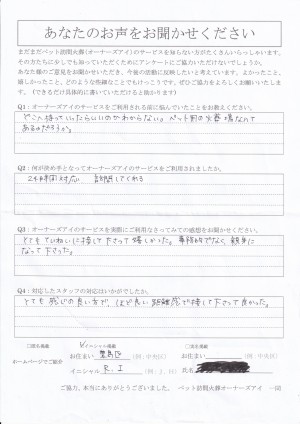 あなたのお声をお聞かせください
まだまだペット訪問火葬(オーナーズアイ)のサービスを知らない方がたくさんいらっしゃいます。
その方たちに少しでも知っていただくためにアンケートにご協力いただけないでしょうか。
あなた様のご意見をお聞かせいただき、今後の活動に反映したいと考えています。よかったこと、
嬉しかったこと、どのような些細なことでもけっこうです。ぜひご協力をよろしくお願いいたしま
す。(できるだけ具体的に書いていただけると助かります)
Q1:オーナーズアイのサービスをご利用される前に悩んでいたことをお教えください。
どこへ持っていったらいいのかわからない。ペット用の火葬場なんて
あるのだろうか。
Q2:何が決め手となってオーナーズアイのサービスをご利用されましたか。
24時間対応 訪問してくれる
Q3:オーナーズアイのサービスを実際にご利用なさってみての感想をお聞かせください。
とてもていねいに接して下さって嬉しかった。事務的でなく、親身に
なって下さった。
Q4:対応したスタッフの対応はいかがでしたか。
とても感じの良い方で、ほど良い距離感で接して下さって良かった。
イニシャル掲載
ホームページでご紹介
お住まい 豊島区 (例:中央区)
イニシャル R.I (例:J.S)
お住まい (例:中央区)
氏名
ご協力、本当にありがとうございました。 ペット訪問火葬オーナーズアイ